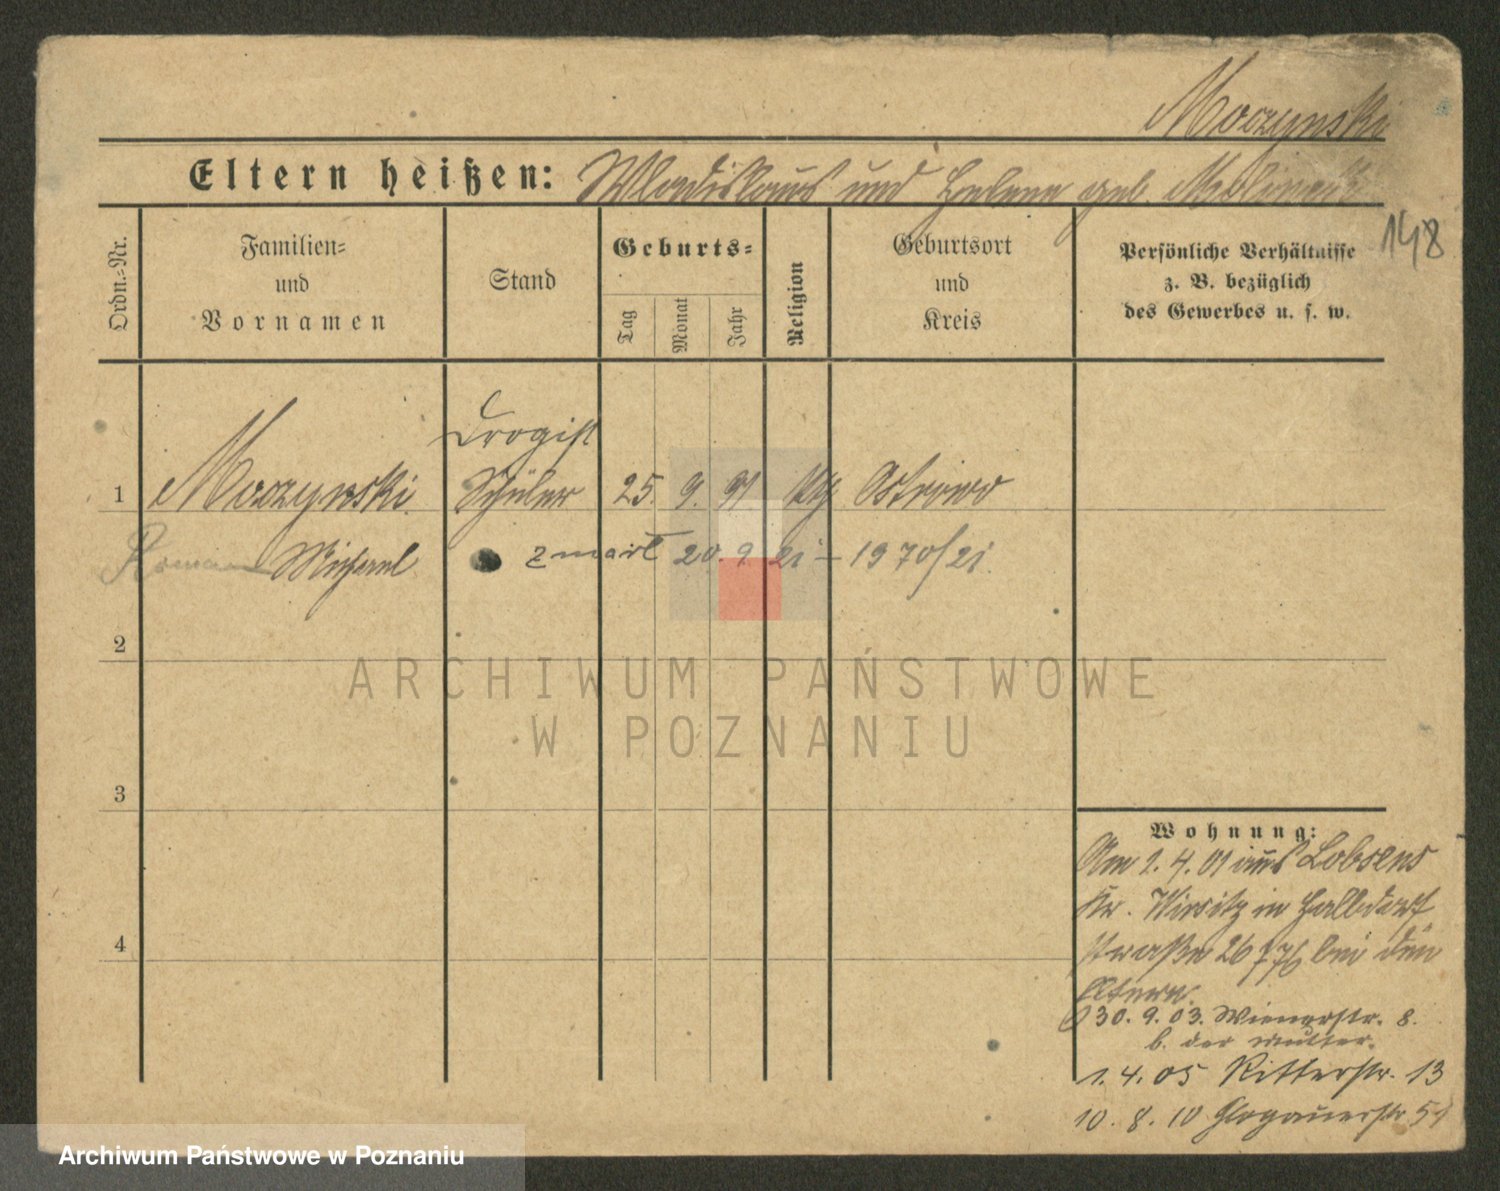 Moczynski
Eltern heißen: Wladislaus und Helene geb.
148
Ordn.-Nr.
Familien-
und
Vornamen
Stand
Geburts-
Tag
Monat
Jahr
Religion
Geburtsort
und
Kreis
Persönliche Verhältnisse
z. B. bezüglich
des Gewerbes u. s. w.
Drogist
1 Moczynski Schüler 25. 9. 91 kth Ostrowo
Roman Michael zmarł 20. 9. 21 – 1970/21.
2
3
4
Wohnung:
Am 1. 4. 01 aus Lobsens
Kr. Wirsitz in Halbdorf
straße 26 bei den
Eltern.
30. 9. 03. Wienerstr. 8.
b. der Mutter.
1. 4. 05 Ritterstr. 13
10. 8. 10 Glogauerstr
ARCHIWUM PAŃSTWOWE
W POZNANIU
Archiwum Państwowe w Poznaniu